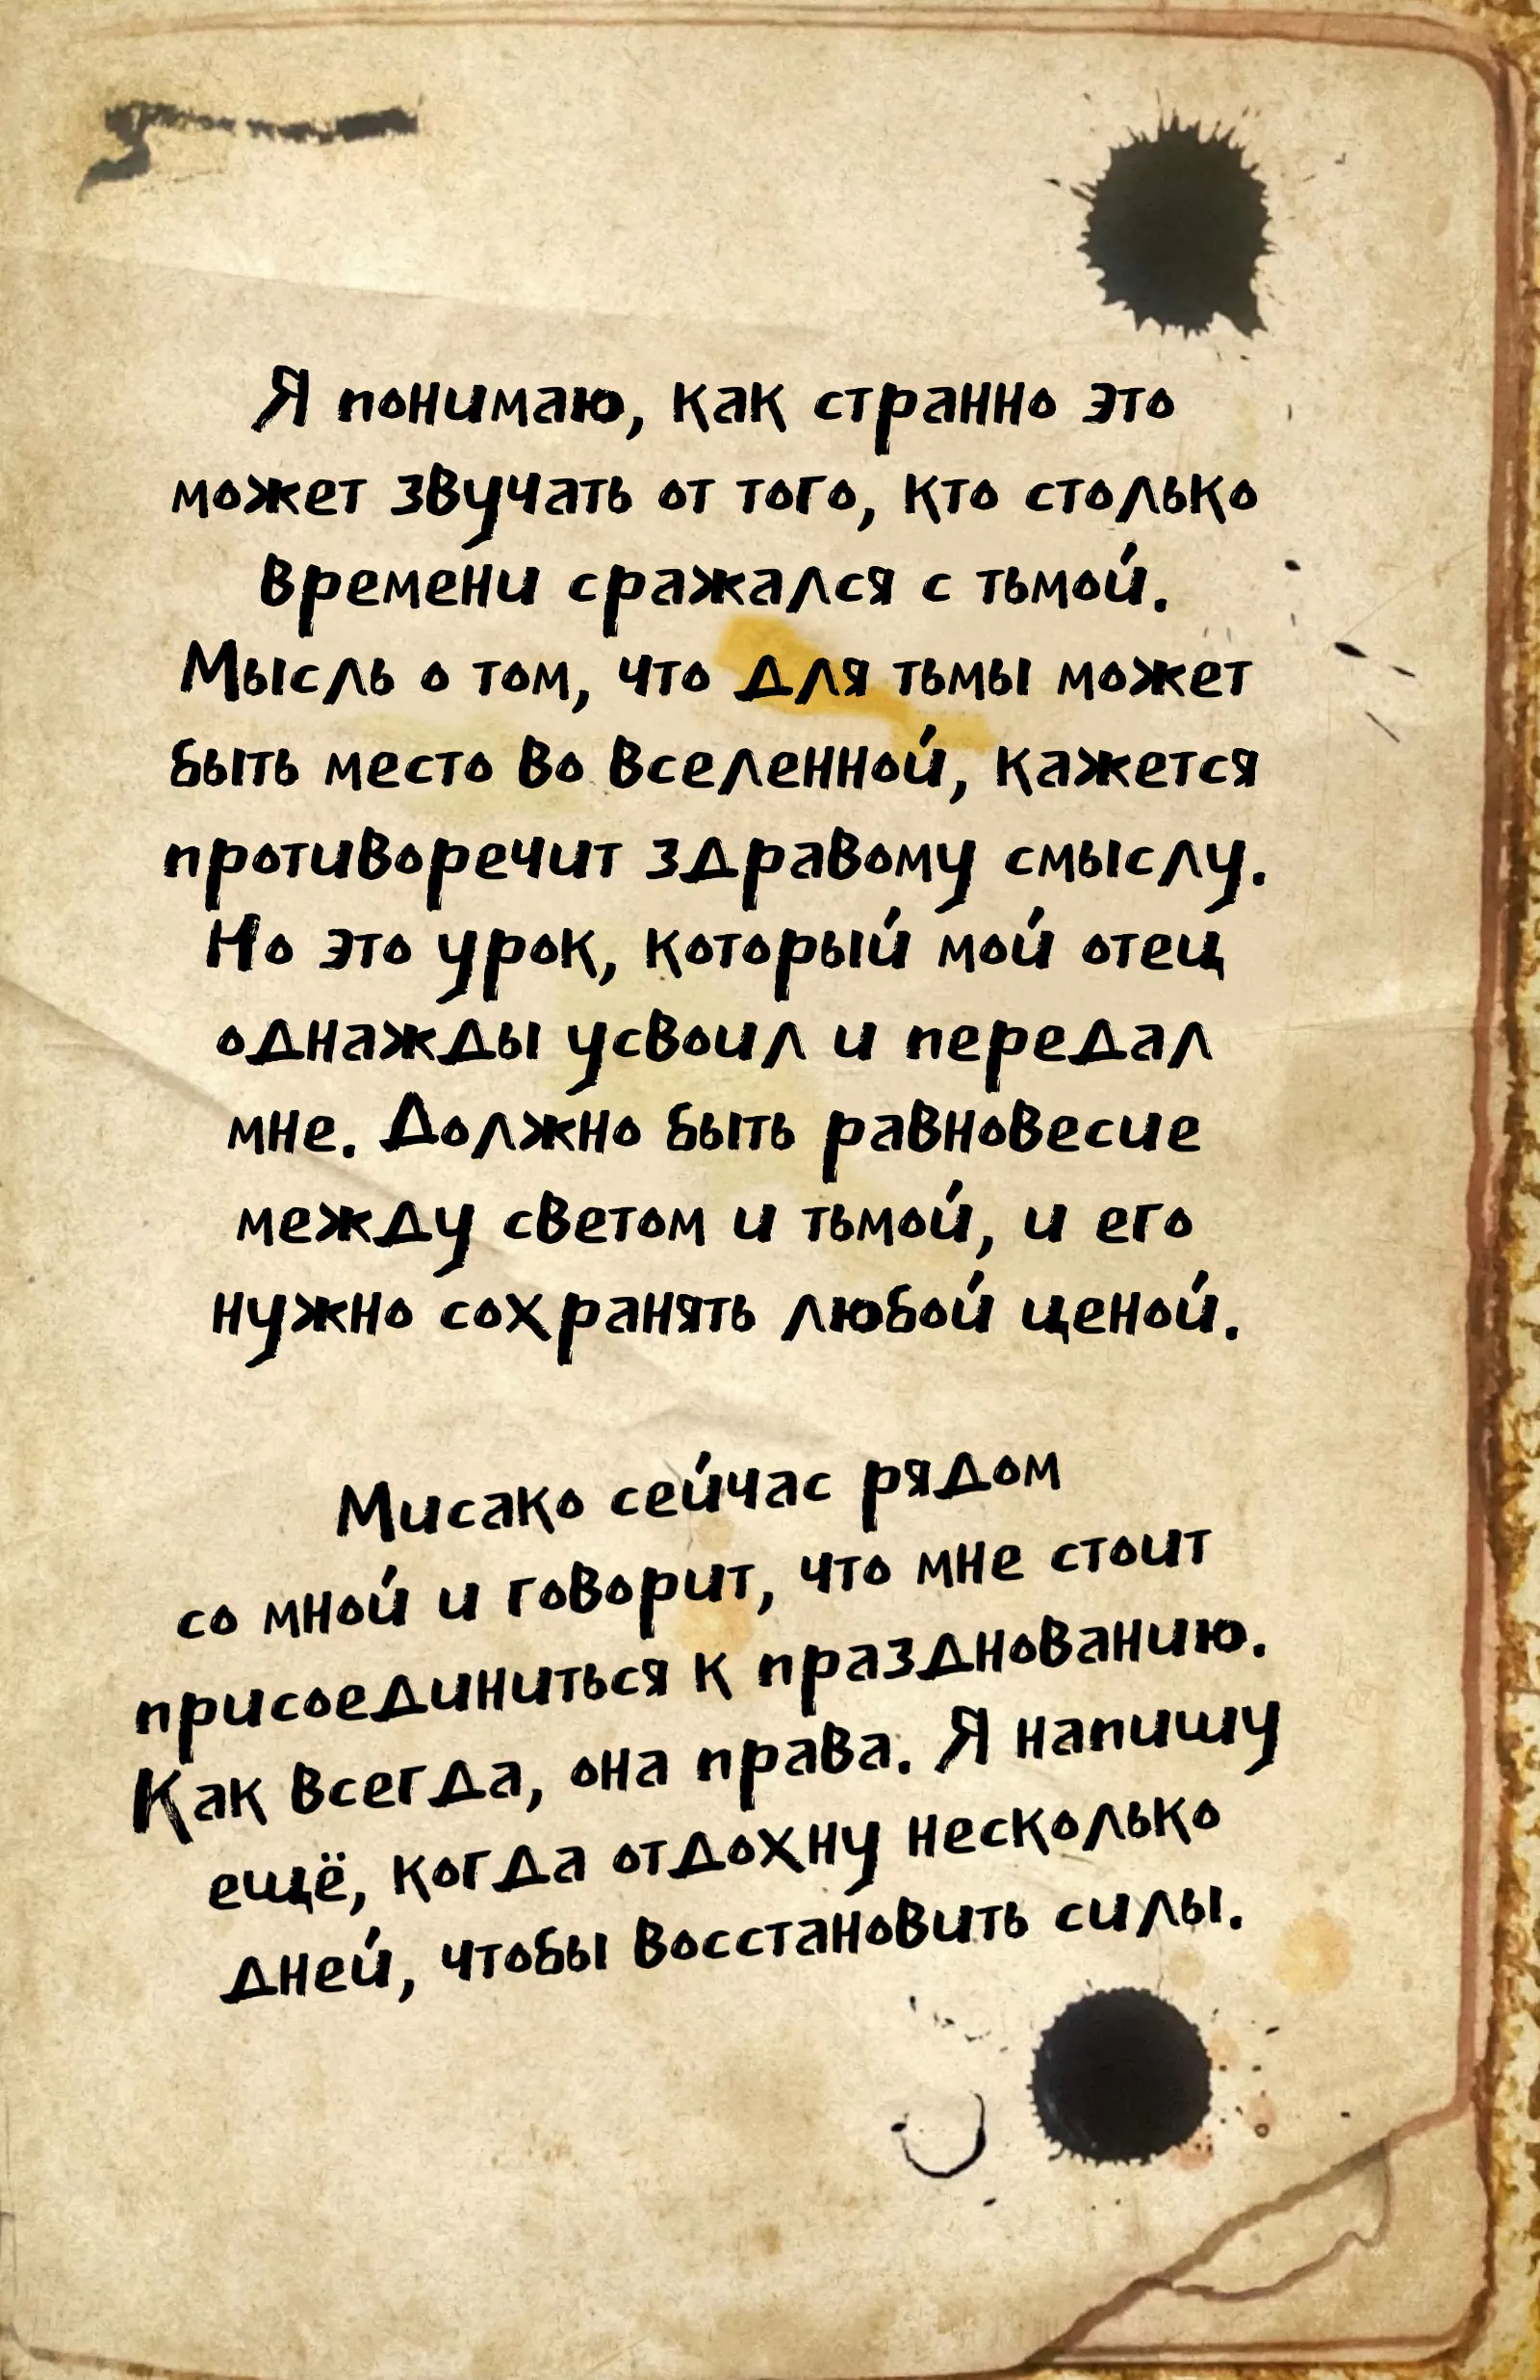 Я понимаю, как странно это
может звучать от того, кто столько
времени сражался с тьмой.
Мысль о том, что для тьмы может
быть место во вселенной, кажется
противоречит здравому смыслу.
Но это урок, который мой отец
однажды усвоил и передал
мне. Должно быть равновесие
между светом и тьмой, и его
нужно сохранять любой ценой.
Мисако сейчас рядом
со мной и говорит, что мне стоит
присоединиться к празднованию.
Как всегда, она права. Я напишу
ещё, когда отдохну несколько
дней, чтобы восстановить силы.